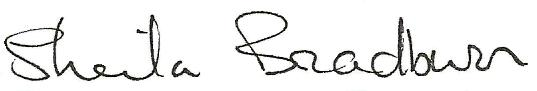 Sheila Bradburn